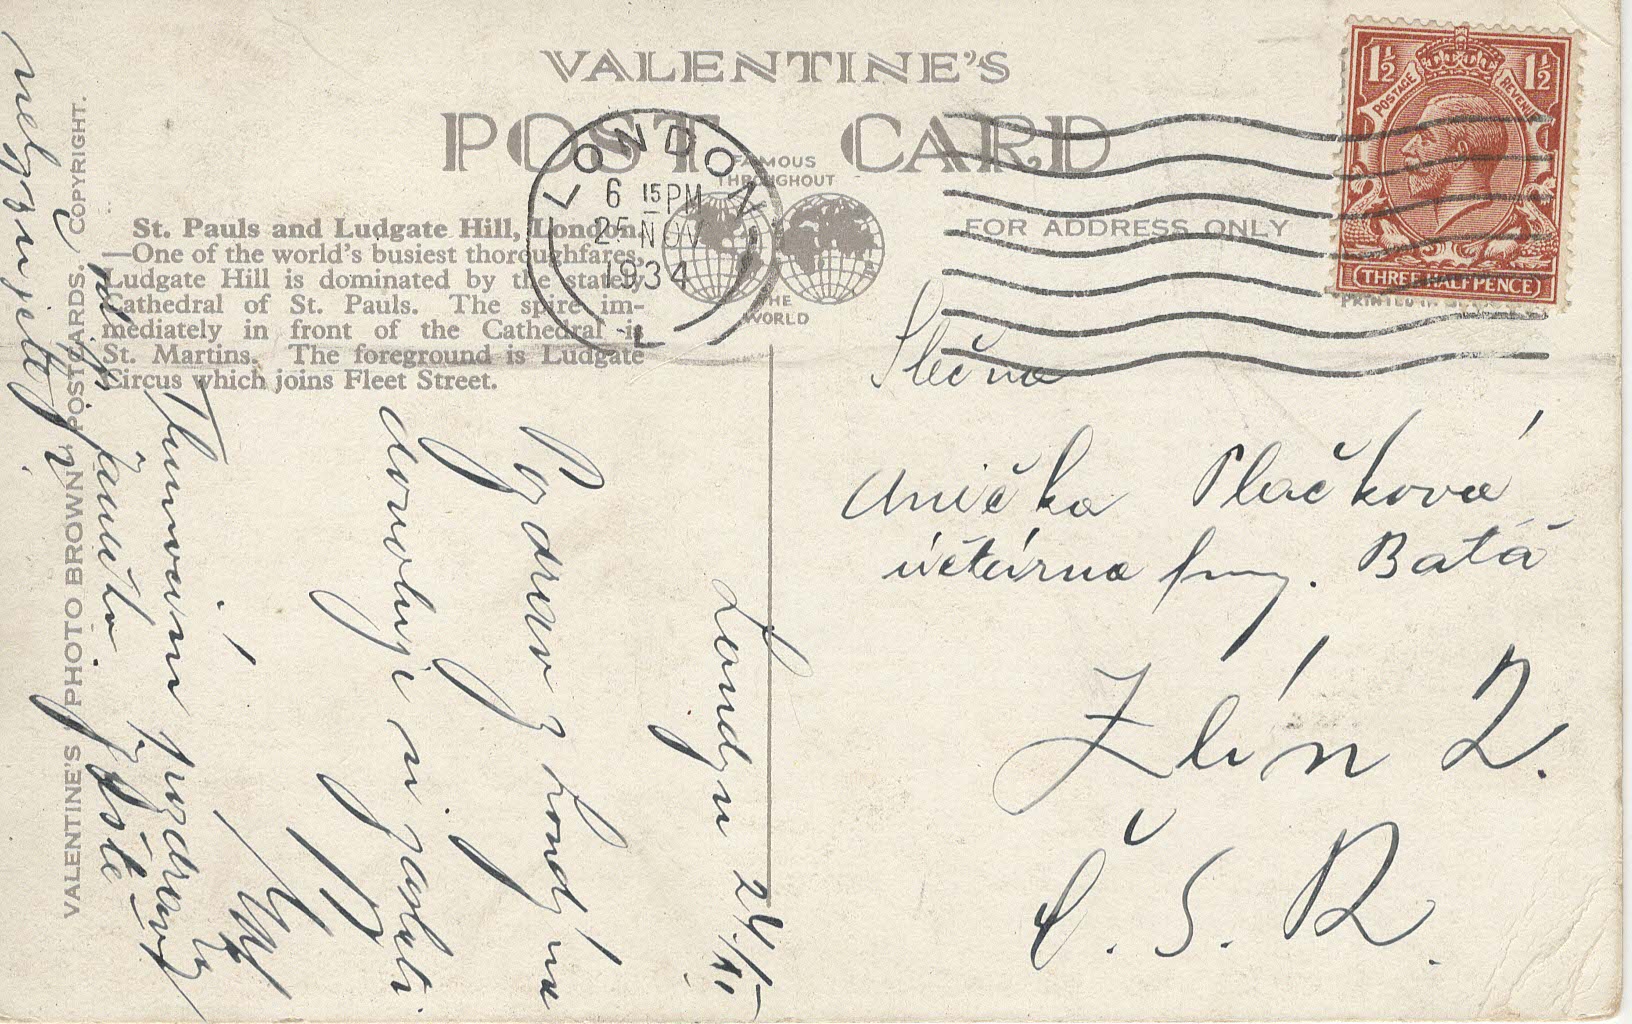 VALENTINE'S
POST CARD
FAMOUS
THROUGHOUT
THE
WORLD
FOR ADDRESS ONLY
LONDON
6 15 PM
25 NOV
1934
L
1½ 1½
POSTAGE REVENUE
THREE HALFPENCE
PRINTED IN
St. Pauls and Ludgate Hill, London.
—One of the world's busiest thoroughfares,
Ludgate Hill is dominated by the stately
Cathedral of St. Pauls. The spire im-
mediately in front of the Cathedral is
St. Martins. The foreground is Ludgate
Circus which joins Fleet Street.
VALENTINE'S "PHOTO BROWN" POSTCARDS. COPYRIGHT.
Londýn 24./11
Pozdrav z Londýna
dovoluje si zaslati
Tlumočím pozdravy
Slečna
Anička Plačková
účtárna fmy. Baťa
Zlín 2.
Č. S. R.